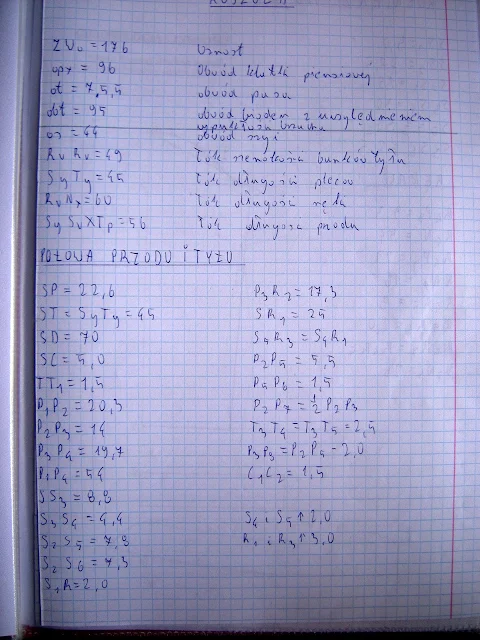 ZUo = 176 Wzrost
opx = 96 Obwód klatki piersiowej
ot = 75,5 obwód pasa
obt = 95 obwód bioder z uwzględnieniem
wypukłości brzucha
os = 44 obwód szyi
RvRv = 49 łuk szerokości barków tyłu
SyTy = 45 łuk długości pleców
RvNx = 60 długość ręka
SySvXTp = 56 łuk długości przodu
POŁOWA PRZODU i TYŁU
SP = 22,6 P3R2 = 17,3
ST = SyTy = 45 SR1 = 25
SD = 70 S4R3 = S4R1
SC = 5,0 P2P5 = 5,5
TT1 = 1,5 P5P6 = 1,5
P1P2 = 20,3 P2P7 = 1/2 P2P3
P2P3 = 14 T3T4 = T3T5 = 2,5
P3P4 = 19,7 P3P9 = P2P5 - 2,0
P1P4 = 54 C1C2 = 1,5
SS3 = 8,8
S3S4 = 4,4 S4 i S5 ↑ 2,0
S2S5 = 7,8 R1 i R3 ↑ 3,0
S2S6 = 7,3
S1R = 2,0